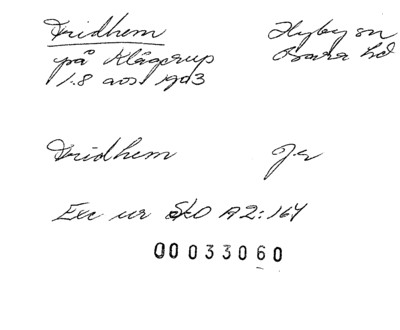 Fridhem Hyby sn
på Klågerup Bara hd
1.8 aos 1903
Fridhem Ja
Exc ur SkO A2:164
00033060